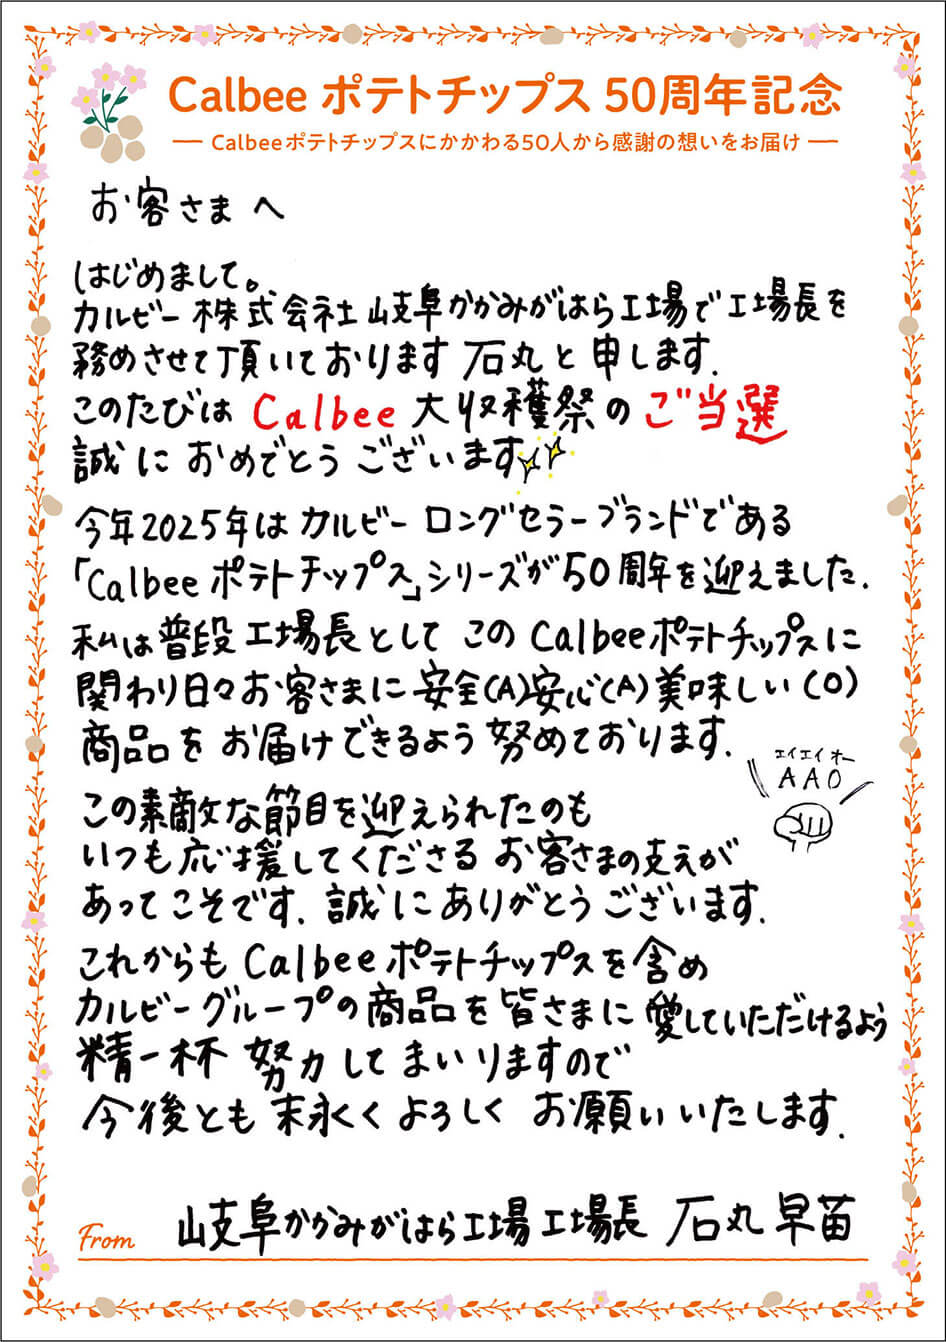 Calbee ポテトチップス 50周年記念
― Calbeeポテトチップスにかかわる50人から感謝の想いをお届け ―
お客さまへ
はじめまして。
カルビー株式会社 山岐阜かかみがはら工場で工場長を
務めさせて頂いております 石丸と申します.
このたびは Calbee 大収穫祭の ご当選
誠に おめでとう ございます
今年2025年は カルビー ロングセラーブランドである
「Calbee ポテトチップス」シリーズが50周年を迎えました.
私は普段 工場長として この Calbeeポテトチップスに
関わり日々お客さまに 安全(A)安心(A)美味しい(O)
商品を お届けできるよう 努めております.
エイエイオー
AAO
この素敵な節目を迎えられたのも
いつも応援してくださる お客さまの支えが
あってこそです. 誠にありがとうございます.
これからも Calbee ポテトチップスを含め
カルビーグループの商品を皆さまに 愛していただけるよう
精一杯 努力して まいりますので
今後とも 末永く よろしく お願いいたします.
From 山岐阜かかみがはら工場 工場長 石丸 早苗